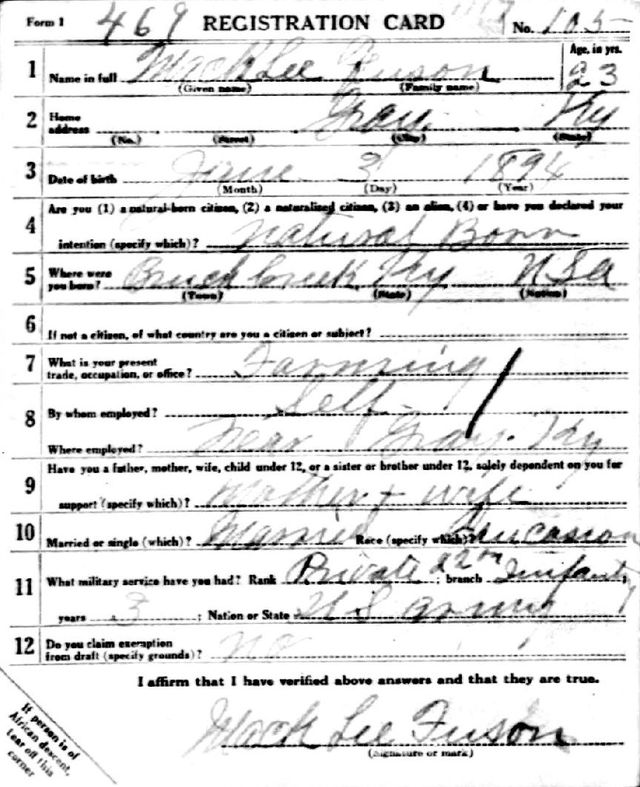 Form 1 469 REGISTRATION CARD No. 105
1 Name in full Mack Lee Fuson Age, in yrs. 23
(Given name) (Family name)
2 Home address Gray, Ky
(No.) (Street) (City) (State)
3 Date of birth June 3 1894
(Month) (Day) (Year)
4 Are you (1) a natural-born citizen, (2) a naturalized citizen, (3) an alien, (4) or have you declared your
intention (specify which)? Natural Born
5 Where were you born? Creek Ky USA
(Town) (State) (Nation)
6 If not a citizen, of what country are you a citizen or subject?
7 What is your present trade, occupation, or office? Farming
8 By whom employed? Self
Where employed? Near Gray, Ky
9 Have you a father, mother, wife, child under 12, or a sister or brother under 12, solely dependent on you for
support (specify which)? Mother + wife
10 Married or single (which)? Married Race (specify which)? Caucasion
11 What military service have you had? Rank Private ; branch 22nd Infantry
years 3 ; Nation or State U S army
12 Do you claim exemption from draft (specify grounds)? No
I affirm that I have verified above answers and that they are true.
Mack Lee Fuson
(Signature or mark)
If person is of
African descent,
tear off this
corner